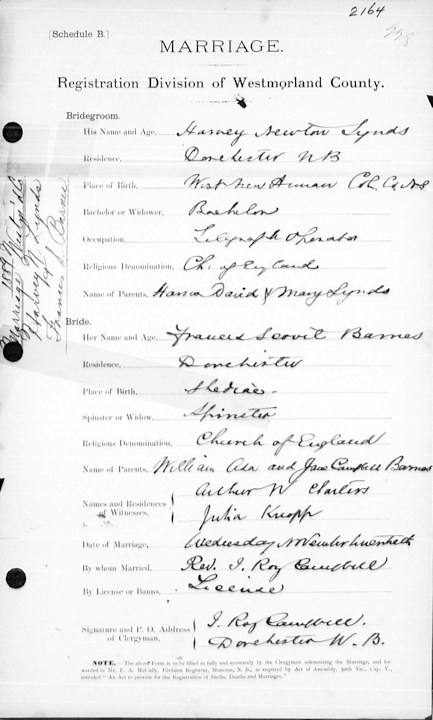 2164
228
[Schedule B.]
MARRIAGE.
Registration Division of Westmorland County.
Bridegroom.
His Name and Age, Harvey Newton Lynds
Residence, Dorchester NB
Place of Birth, West New Annan Col. Co. N.S
Bachelor or Widower, Bachelor
Occupation, Telegraph Operator
Religious Denomination, Ch. of England
Name of Parents, David & Mary Lynds
Bride.
Her Name and Age, Francis Scovil Barnes
Residence, Dorchester
Place of Birth, Shediac.
Spinster or Widow, Spinster
Religious Denomination, Church of England
Name of Parents, William and Jane Campbell Barnes
Names and Residences of Witnesses,
Arthur W Charters
Julia Knapp
Date of Marriage, Wednesday November
By whom Married, Rev. J. Roy Campbell
By License or Banns, License
Signature and P. O. Address of Clergyman.
J. Roy Campbell.
Dorchester N. B.
NOTE. – The above Form is to be filled in fully and accurately by the Clergyman solemnizing the Marriage, and for-
warded to Mr. F. A. McCully, Division Registrar, Moncton, N. B., as required by Act of Assembly, 50th Vic., Cap. V.,
intituled "An Act to provide for the Registration of Births, Deaths and Marriages."
1889
Marriage
Harvey N Lynds
&
Frances S Barnes